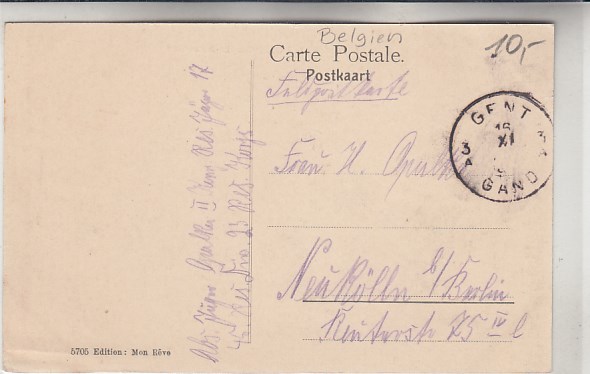 Belgien
10,-
Carte Postale.
Postkaart
Feldpostkarte
GENT
16
XI
3 A
3 A
GAND
Frau H.
Neukölln b/Berlin
Reuterstr 75 IV l
Abs. Jäger II Komp Res. Jäger 17
45 Res Div. 23 Res Korps
5705 Edition: Mon Rêve